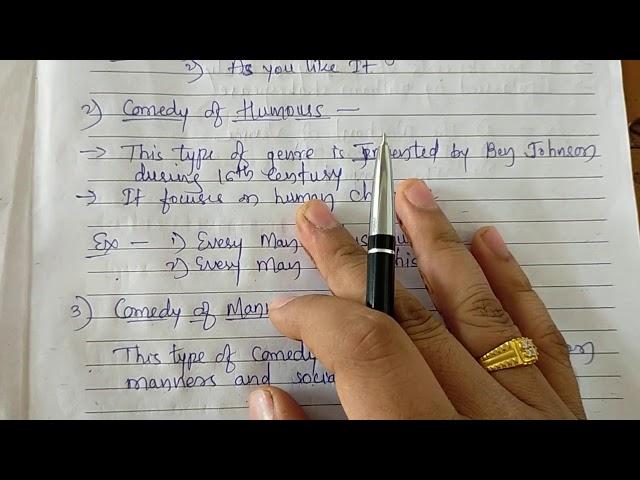 2) As you like It
2) Comedy of Humours —
→ This type of genre is Invented by Ben Johnson
during 16th Century
→ It focuses on human
Ex — 1) Every Man
2) Every Man
3) Comedy of
This type of comedy
manners and